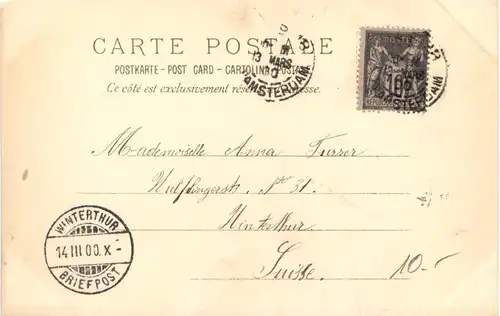 CARTE POSTALE
POSTKARTE - POST CARD - CARTOLINA POSTALE
Ce côté est exclusivement réservé à l'adresse.
13 MARS
AMSTERDAM
POSTE
10
AMSTERDAM
Mademoiselle Anna Furrer
Wülflingerstr. No 31.
Winterthur
Suisse.
10.-
WINTERTHUR
14 III 00. X -
BRIEFPOST